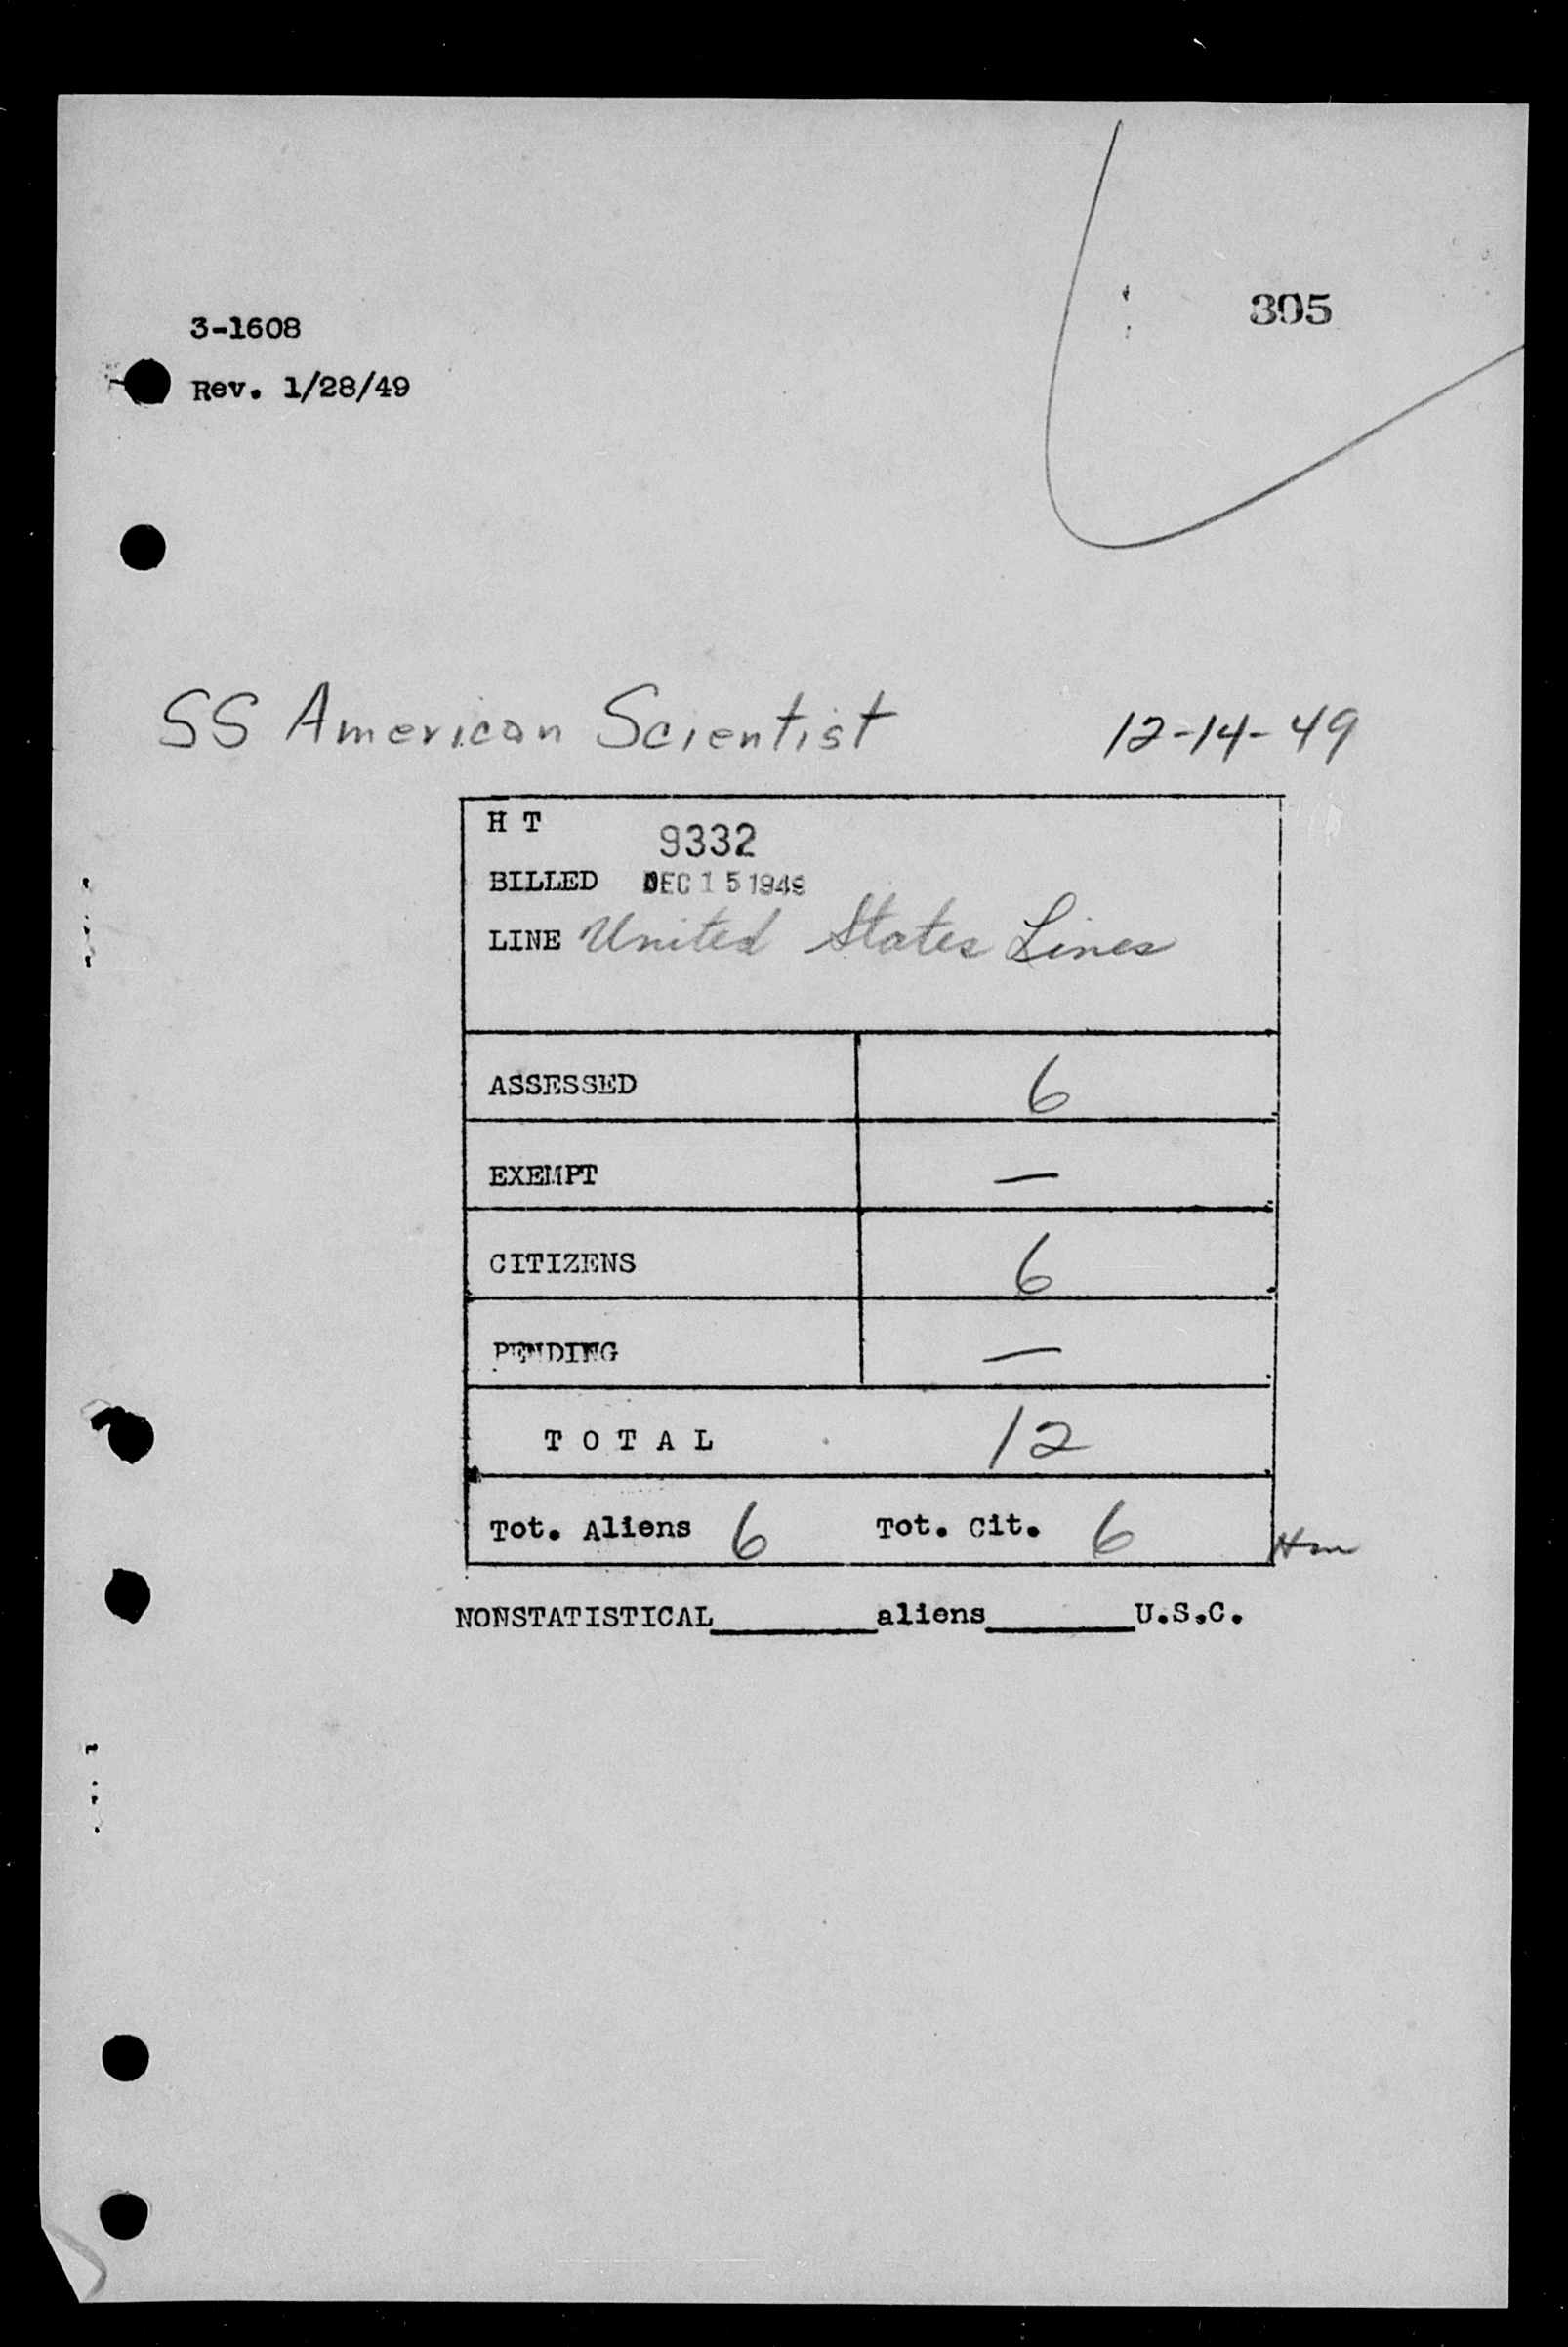 305
3-1608
Rev. 1/28/49
SS American Scientist 12-14-49
H T 9332
BILLED DEC 15 1949
LINE United States Lines
ASSESSED 6
EXEMPT —
CITIZENS 6
PENDING —
T O T A L 12
Tot. Aliens 6 Tot. Cit. 6
NONSTATISTICAL________aliens_______U.S.C.